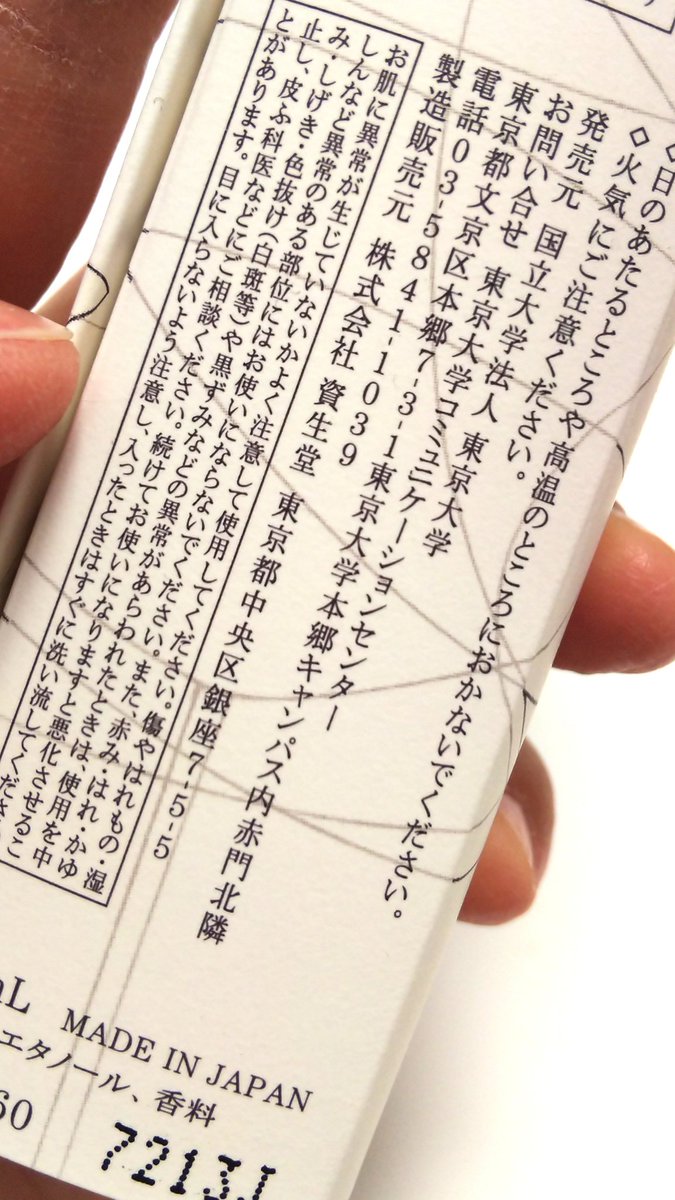 ◇日のあたるところや高温のところにおかないでください。
◇火気にご注意ください。
発売元 国立大学法人 東京大学
お問い合せ 東京大学コミュニケーションセンター
東京都文京区本郷7-3-1東京大学本郷キャンパス内赤門北隣
電話03-5841-1039
製造販売元 株式会社 資生堂 東京都中央区銀座7-5-5
お肌に異常が生じていないかよく注意して使用してください。傷やはれもの・湿
しんなど異常のある部位にはお使いにならないでください。また、赤み・はれ・かゆ
み・しげき・色抜け(白斑等)や黒ずみなどの異常があらわれたときは、使用を中
止し、皮ふ科医などにご相談ください。続けてお使いになりますと悪化させるこ
とがあります。目に入らないよう注意し、入ったときはすぐに洗い流してください
mL MADE IN JAPAN
エタノール、香料
60
7213J